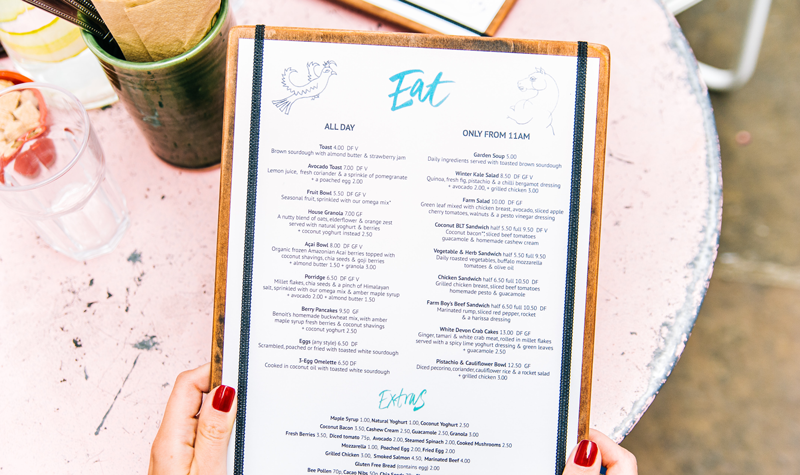 Eat
ALL DAY
Toast 4.00 DF V
Brown sourdough with almond butter & strawberry jam
Avocado Toast 7.00 DF V
Lemon juice, fresh coriander & a sprinkle of pomegranate
+ a poached egg 2.00
Fruit Bowl 5.50 DF GF V
Seasonal fruit, sprinkled with our omega mix*
House Granola 7.00 GF
A nutty blend of oats, elderflower & orange zest
served with natural yoghurt & berries
+ coconut yoghurt instead 2.50
Açai Bowl 8.00 DF GF V
Organic frozen Amazonian Acai berries topped with
coconut shavings, chia seeds & goji berries
+ almond butter 1.50 + granola 3.00
Porridge 6.50 DF GF V
Millet flakes, chia seeds & a pinch of Himalayan
salt, sprinkled with our omega mix & amber maple syrup
+ avocado 2.00 + almond butter 1.50
Berry Pancakes 9.50 GF
Benoit's homemade buckwheat mix, with amber
maple syrup fresh berries & coconut shavings
+ coconut yoghurt 2.50
Eggs (any style) 6.50 DF
Scrambled, poached or fried with toasted white sourdough
3-Egg Omelette 6.50 DF
Cooked in coconut oil with toasted white sourdough
ONLY FROM 11AM
Garden Soup 5.00
Daily ingredients served with toasted brown sourdough
Winter Kale Salad 8.50 DF GF V
Quinoa, fresh fig, pistachio & a chilli bergamot dressing
+ avocado 2.00, + grilled chicken 3.00
Farm Salad 10.00 DF GF
Green leaf mixed with chicken breast, avocado, sliced apple
cherry tomatoes, walnuts & a pesto vinegar dressing
Coconut BLT Sandwich half 5.50 full 9.50 DF V
Coconut bacon**, sliced beef tomatoes
guacamole & homemade cashew cream
Vegetable & Herb Sandwich half 5.50 full 9.50
Daily roasted vegetables, buffalo mozzarella
tomatoes & olive oil
Chicken Sandwich half 6.50 full 10.50 DF
Grilled chicken breast, sliced beef tomatoes
homemade pesto & guacamole
Farm Boy's Beef Sandwich half 6.50 full 10.50 DF
Marinated rump, sliced red pepper, rocket
& a harissa dressing
White Devon Crab Cakes 13.00 DF GF
Ginger, tamari & white crab meat, rolled in millet flakes
served with a spicy lime yoghurt dressing & green leaves
+ guacamole 2.50
Pistachio & Cauliflower Bowl 12.50 GF
Diced pecorino, coriander, cauliflower rice & a rocket salad
+ grilled chicken 3.00
Extras
Maple Syrup 1.00, Natural Yoghurt 1.00, Coconut Yoghurt 2.50
Coconut Bacon 3.50, Cashew Cream 2.50, Guacamole 2.50, Granola 3.00
Fresh Berries 3.50, Diced tomato 75p, Avocado 2.00, Steamed Spinach 2.00, Cooked Mushrooms 2.50
Mozzarella 1.00, Poached Egg 2.00, Fried Egg 2.00
Grilled Chicken 3.00, Smoked Salmon 4.50, Marinated Beef 4.00
Gluten Free Bread (contains egg) 2.00
Bee Pollen 70p, Cacao Nibs